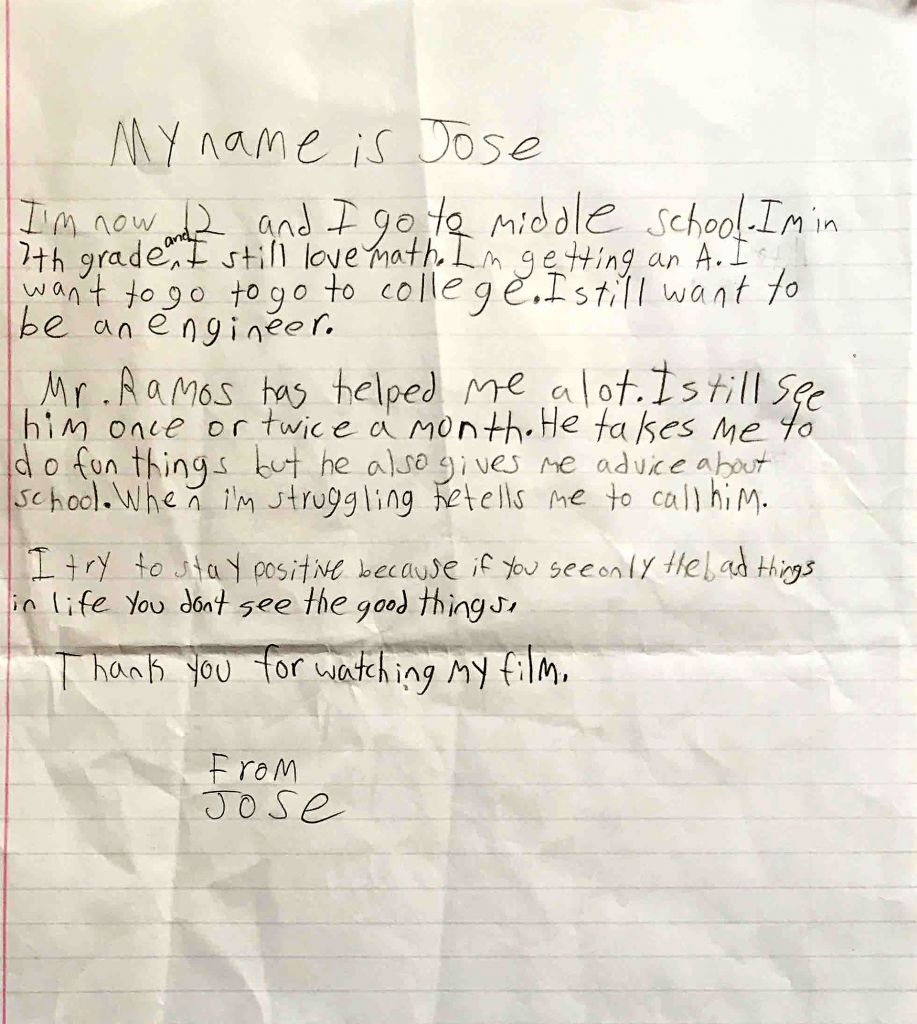 My name is Jose
I'm now 12 and I go to middle school. Im in
7th grade, and I still love math. Im getting an A. I
want to go to go to college. I still want to
be an engineer.
Mr. Ramos has helped me alot. I still see
him once or twice a month. He takes me to
do fun things but he also gives me advice about
school. When i'm struggling he tells me to call him.
I try to stay positive because if you see only the bad things
in life you dont see the good things.
Thank you for watching my film.
From
Jose